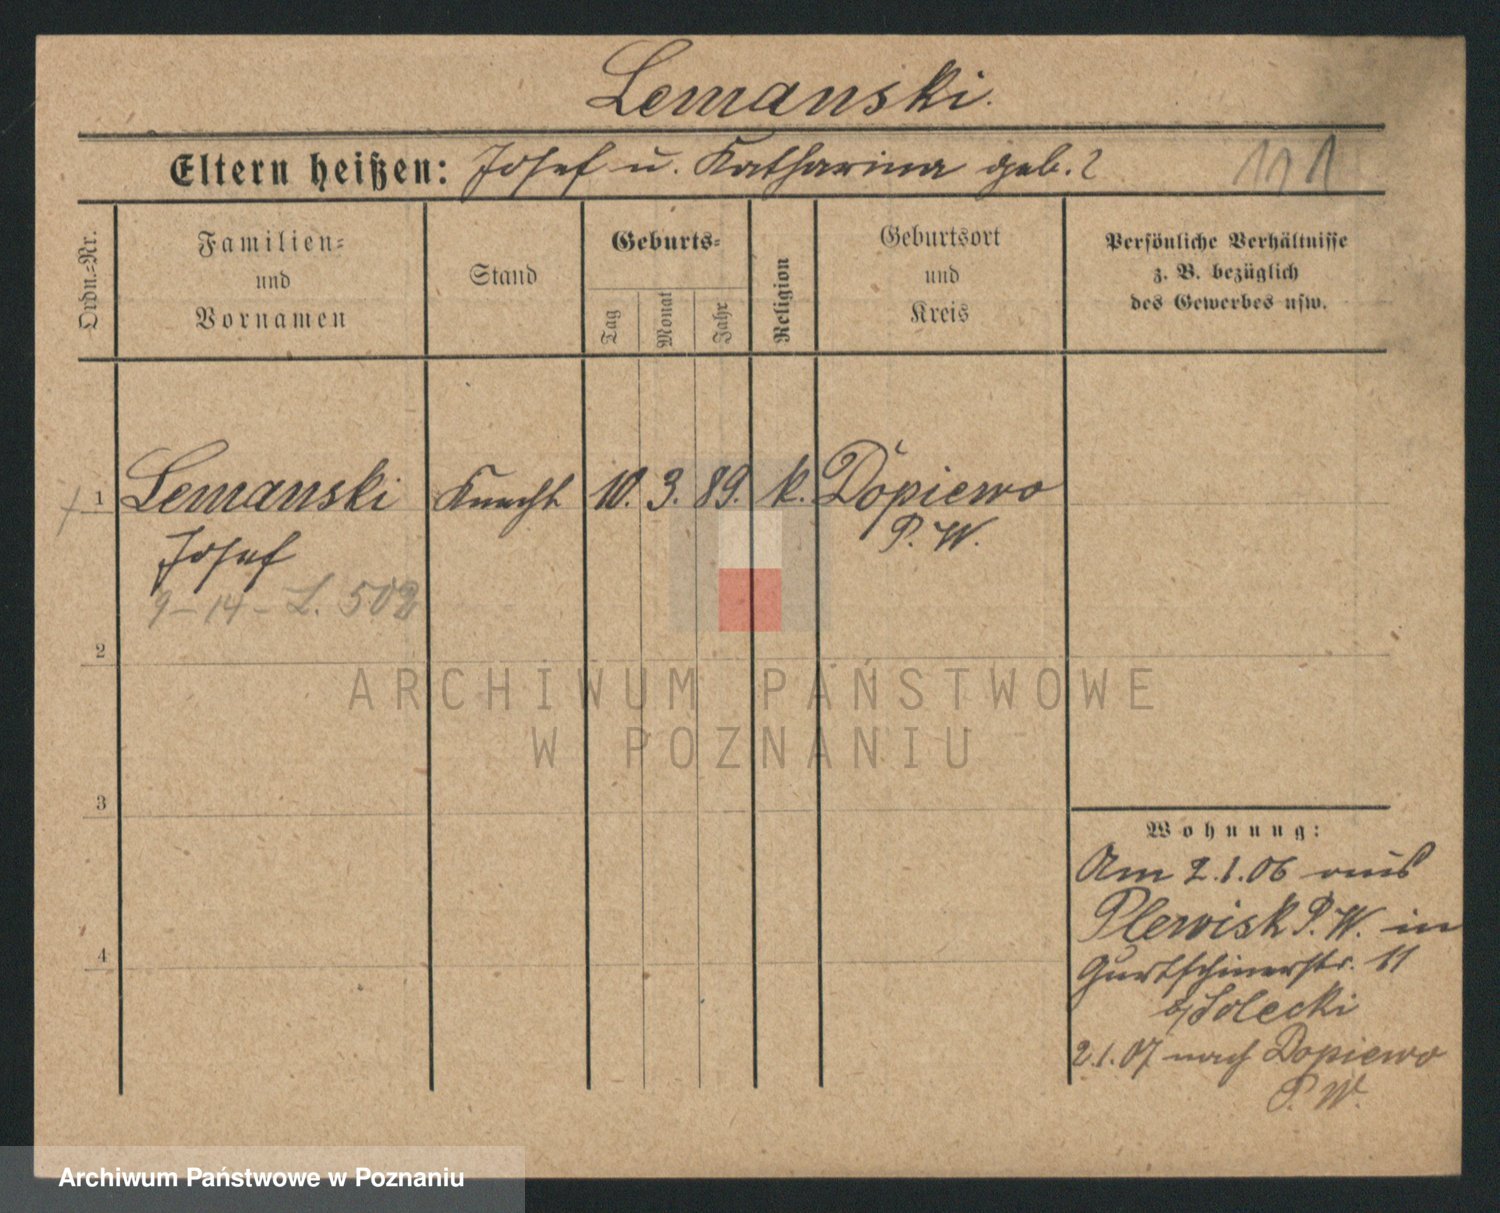 Lemanski.
Eltern heißen: Josef u. Katharina geb. ?
111
Ordn.=Nr.
Familien=
und
Vornamen
Stand
Geburts=
Tag
Monat
Jahr
Religion
Geburtsort
und
Kreis
Persönliche Verhältnisse
z. B. bezüglich
des Gewerbes usw.
1 Lemanski Knecht 10. 3. 89. k. Dopiewo
Josef P. W.
9-14- L. 502
2
3
4
Wohnung:
Am 2.1.06 aus
Plewisk P. W. in
Gurtschinerstr. 11
b/Solecki
2.1.07 nach Dopiewo
P. W.
ARCHIWUM PAŃSTWOWE
W POZNANIU
Archiwum Państwowe w Poznaniu